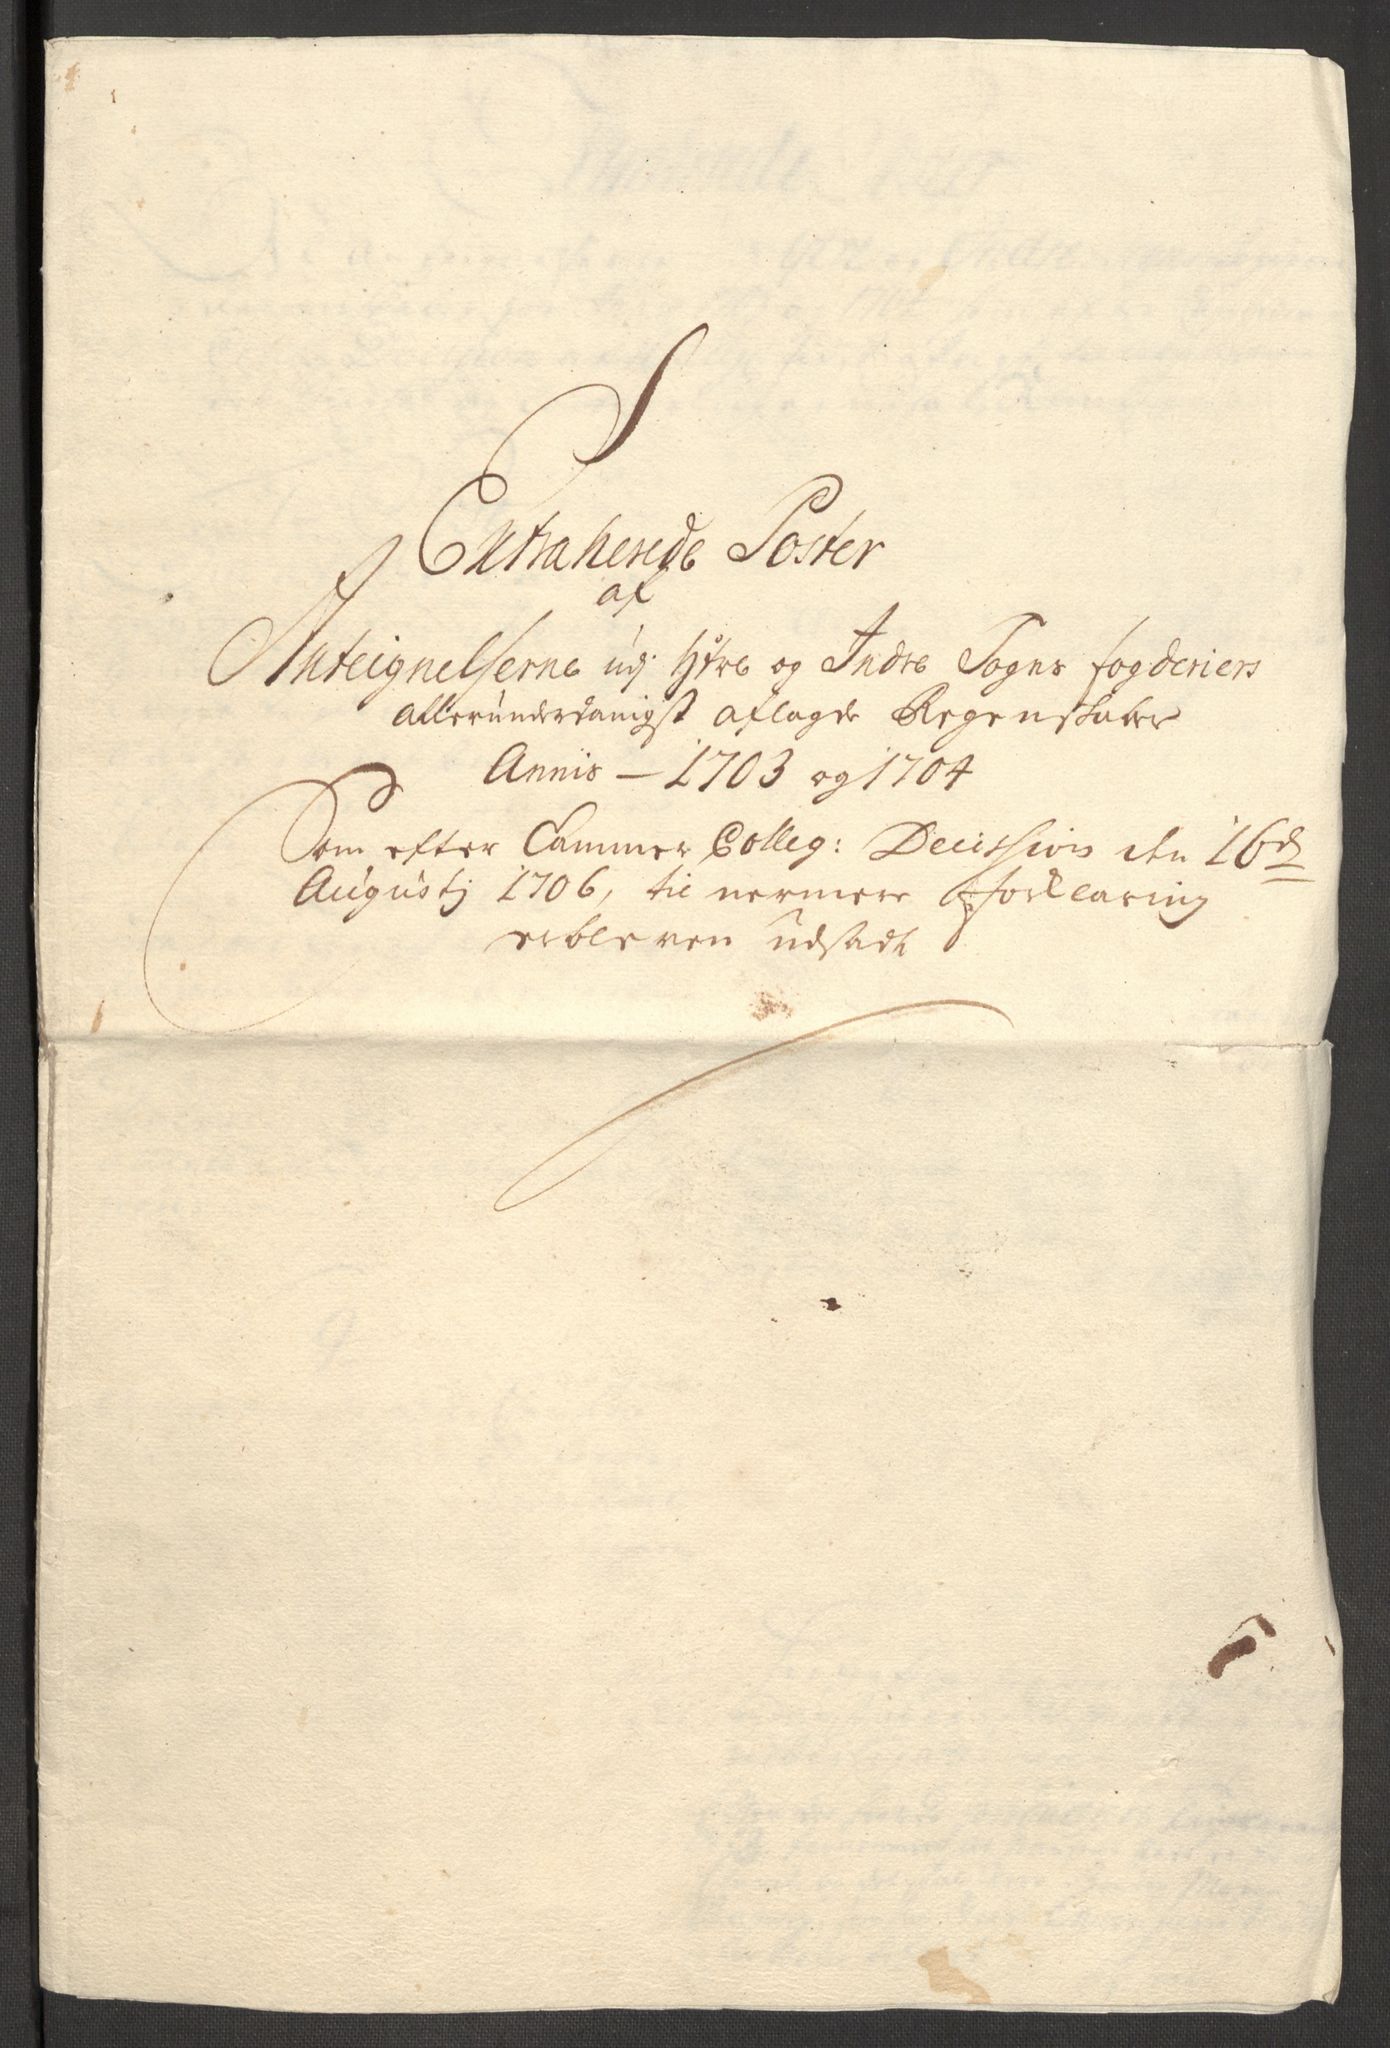 Extraherede Poster
af
Anteignelserne udj Yttre og Indre Sogns fogderiers
allerunderdanigst aflagde Regenskaber
Annis — 1703 og 1704
Som efter Cammer Colleg: Decission den 16d
Augustj 1706, til nermere forklaring
erbleven udsadt